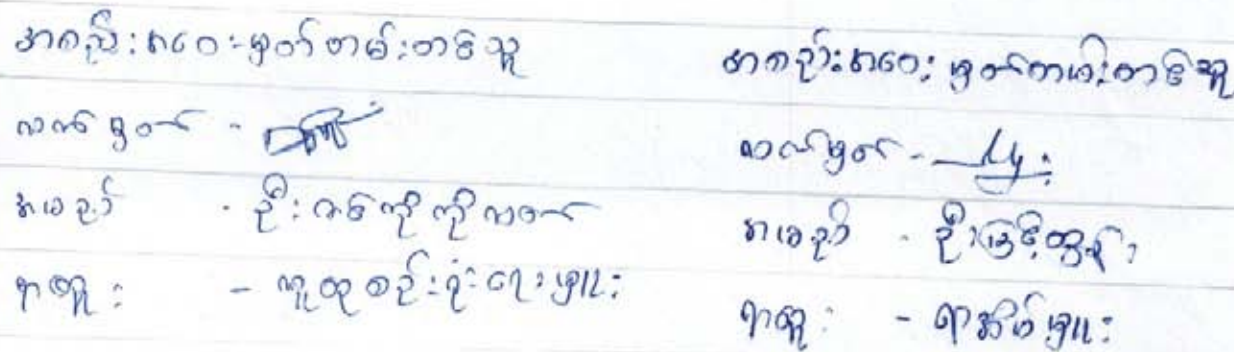 အစည်းအဝေးမှတ်တမ်းတင်သူ
လက်မှတ် -
အမည် - ဦးဇင်ကိုကိုလတ်
ရာထူး - လူထုစည်းရုံးရေးမှူး
အစည်းအဝေးမှတ်တမ်းတင်သူ
လက်မှတ် -
အမည် - ဦးမြင့်ထွန်း
ရာထူး - ရာအိမ်မှူး